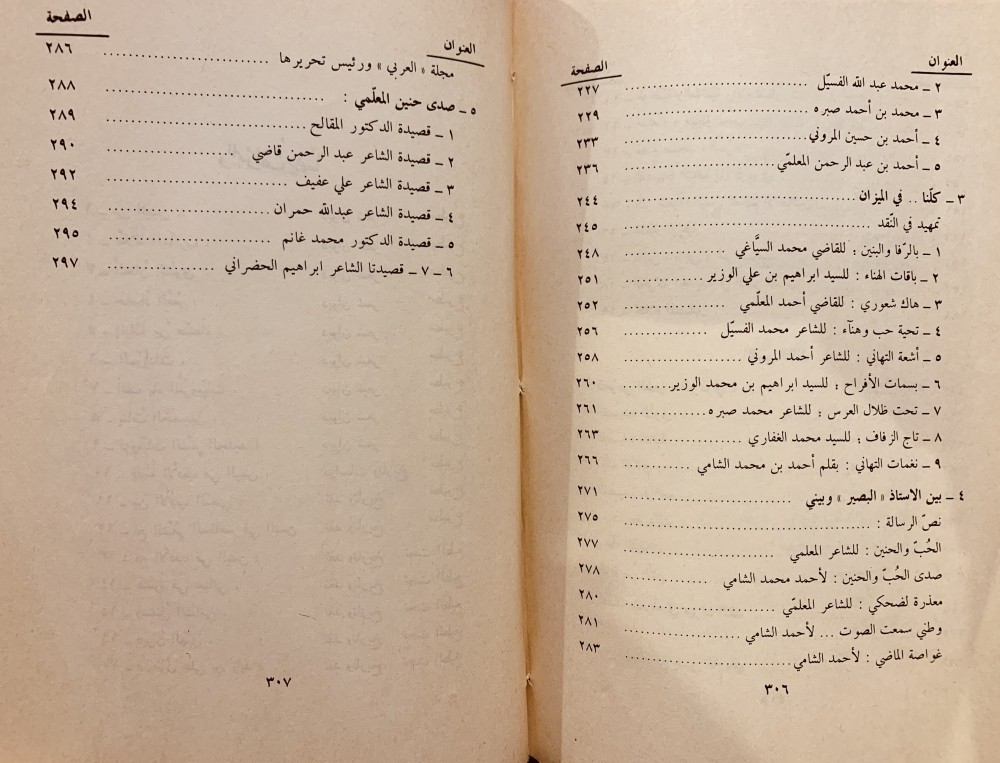 العنوان الصفحة
٢ ــ محمد عبد الله الفسيّل ........................ ٢٢٧
٣ ــ محمد بن أحمد صبره ........................ ٢٢٩
٤ ــ أحمد بن حسين المروني ........................ ٢٣٣
٥ ــ أحمد بن عبد الرحمن المعلمّي ........................ ٢٣٦
٣ ــ كلّنا .. في الميزان ........................ ٢٤٤
تمهيد في النّقد ........................ ٢٤٥
١ ــ بالرّفا والبنين : للقاضي محمد السيَّاغي ........................ ٢٤٨
٢ ــ باقات الهناء : للسيد ابراهيم بن علي الوزير ........................ ٢٥١
٣ ــ هاك شعوري : للقاضي أحمد المعلّمي ........................ ٢٥٢
٤ ــ تحية حب وهنآء : للشاعر محمد الفسيّل ........................ ٢٥٦
٥ ــ أشعة التهاني : للشاعر أحمد المروني ........................ ٢٥٨
٦ ــ بسمات الأفراح : للسيد ابراهيم بن محمد الوزير ........................ ٢٦٠
٧ ــ تحت ظلال العرس : للشاعر محمد صبره ........................ ٢٦١
٨ ــ تاج الزفاف : للسيد محمد الغفاري ........................ ٢٦٣
٩ ــ نغمات التهاني : بقلم أحمد بن محمد الشامي ........................ ٢٦٦
٤ ــ بين الاستاذ « البصير » وبيني ........................ ٢٧١
نصّ الرسالة : ........................ ٢٧٥
الحُبّ والحنين : للشاعر المعلمي ........................ ٢٧٧
صدى الحُبّ والحنين : لأحمد محمد الشامي ........................ ٢٧٨
معذرة لضحكي : للشاعر المعلمّي ........................ ٢٨٠
وطني سمعت الصوت ... لأحمد الشامي ........................ ٢٨١
غواصة الماضي : لأحمد الشامي ........................ ٢٨٣
٣٠٦
العنوان الصفحة
مجلة « العربي » ورئيس تحريرها ........................ ٢٨٦
٥ ــ صدى حنين المعلّمي : ........................ ٢٨٨
١ ــ قصيدة الدكتور المقالح ........................ ٢٨٩
٢ ــ قصيدة الشاعر عبد الرحمن قاضي ........................ ٢٩٠
٣ ــ قصيدة الشاعر علي عفيف ........................ ٢٩٢
٤ ــ قصيدة الشاعر عبدالله حمران ........................ ٢٩٤
٥ ــ قصيدة الدكتور محمد غانم ........................ ٢٩٥
٦ ــ ٧ ــ قصيدتا الشاعر ابراهيم الحضراني ........................ ٢٩٧
٣٠٧